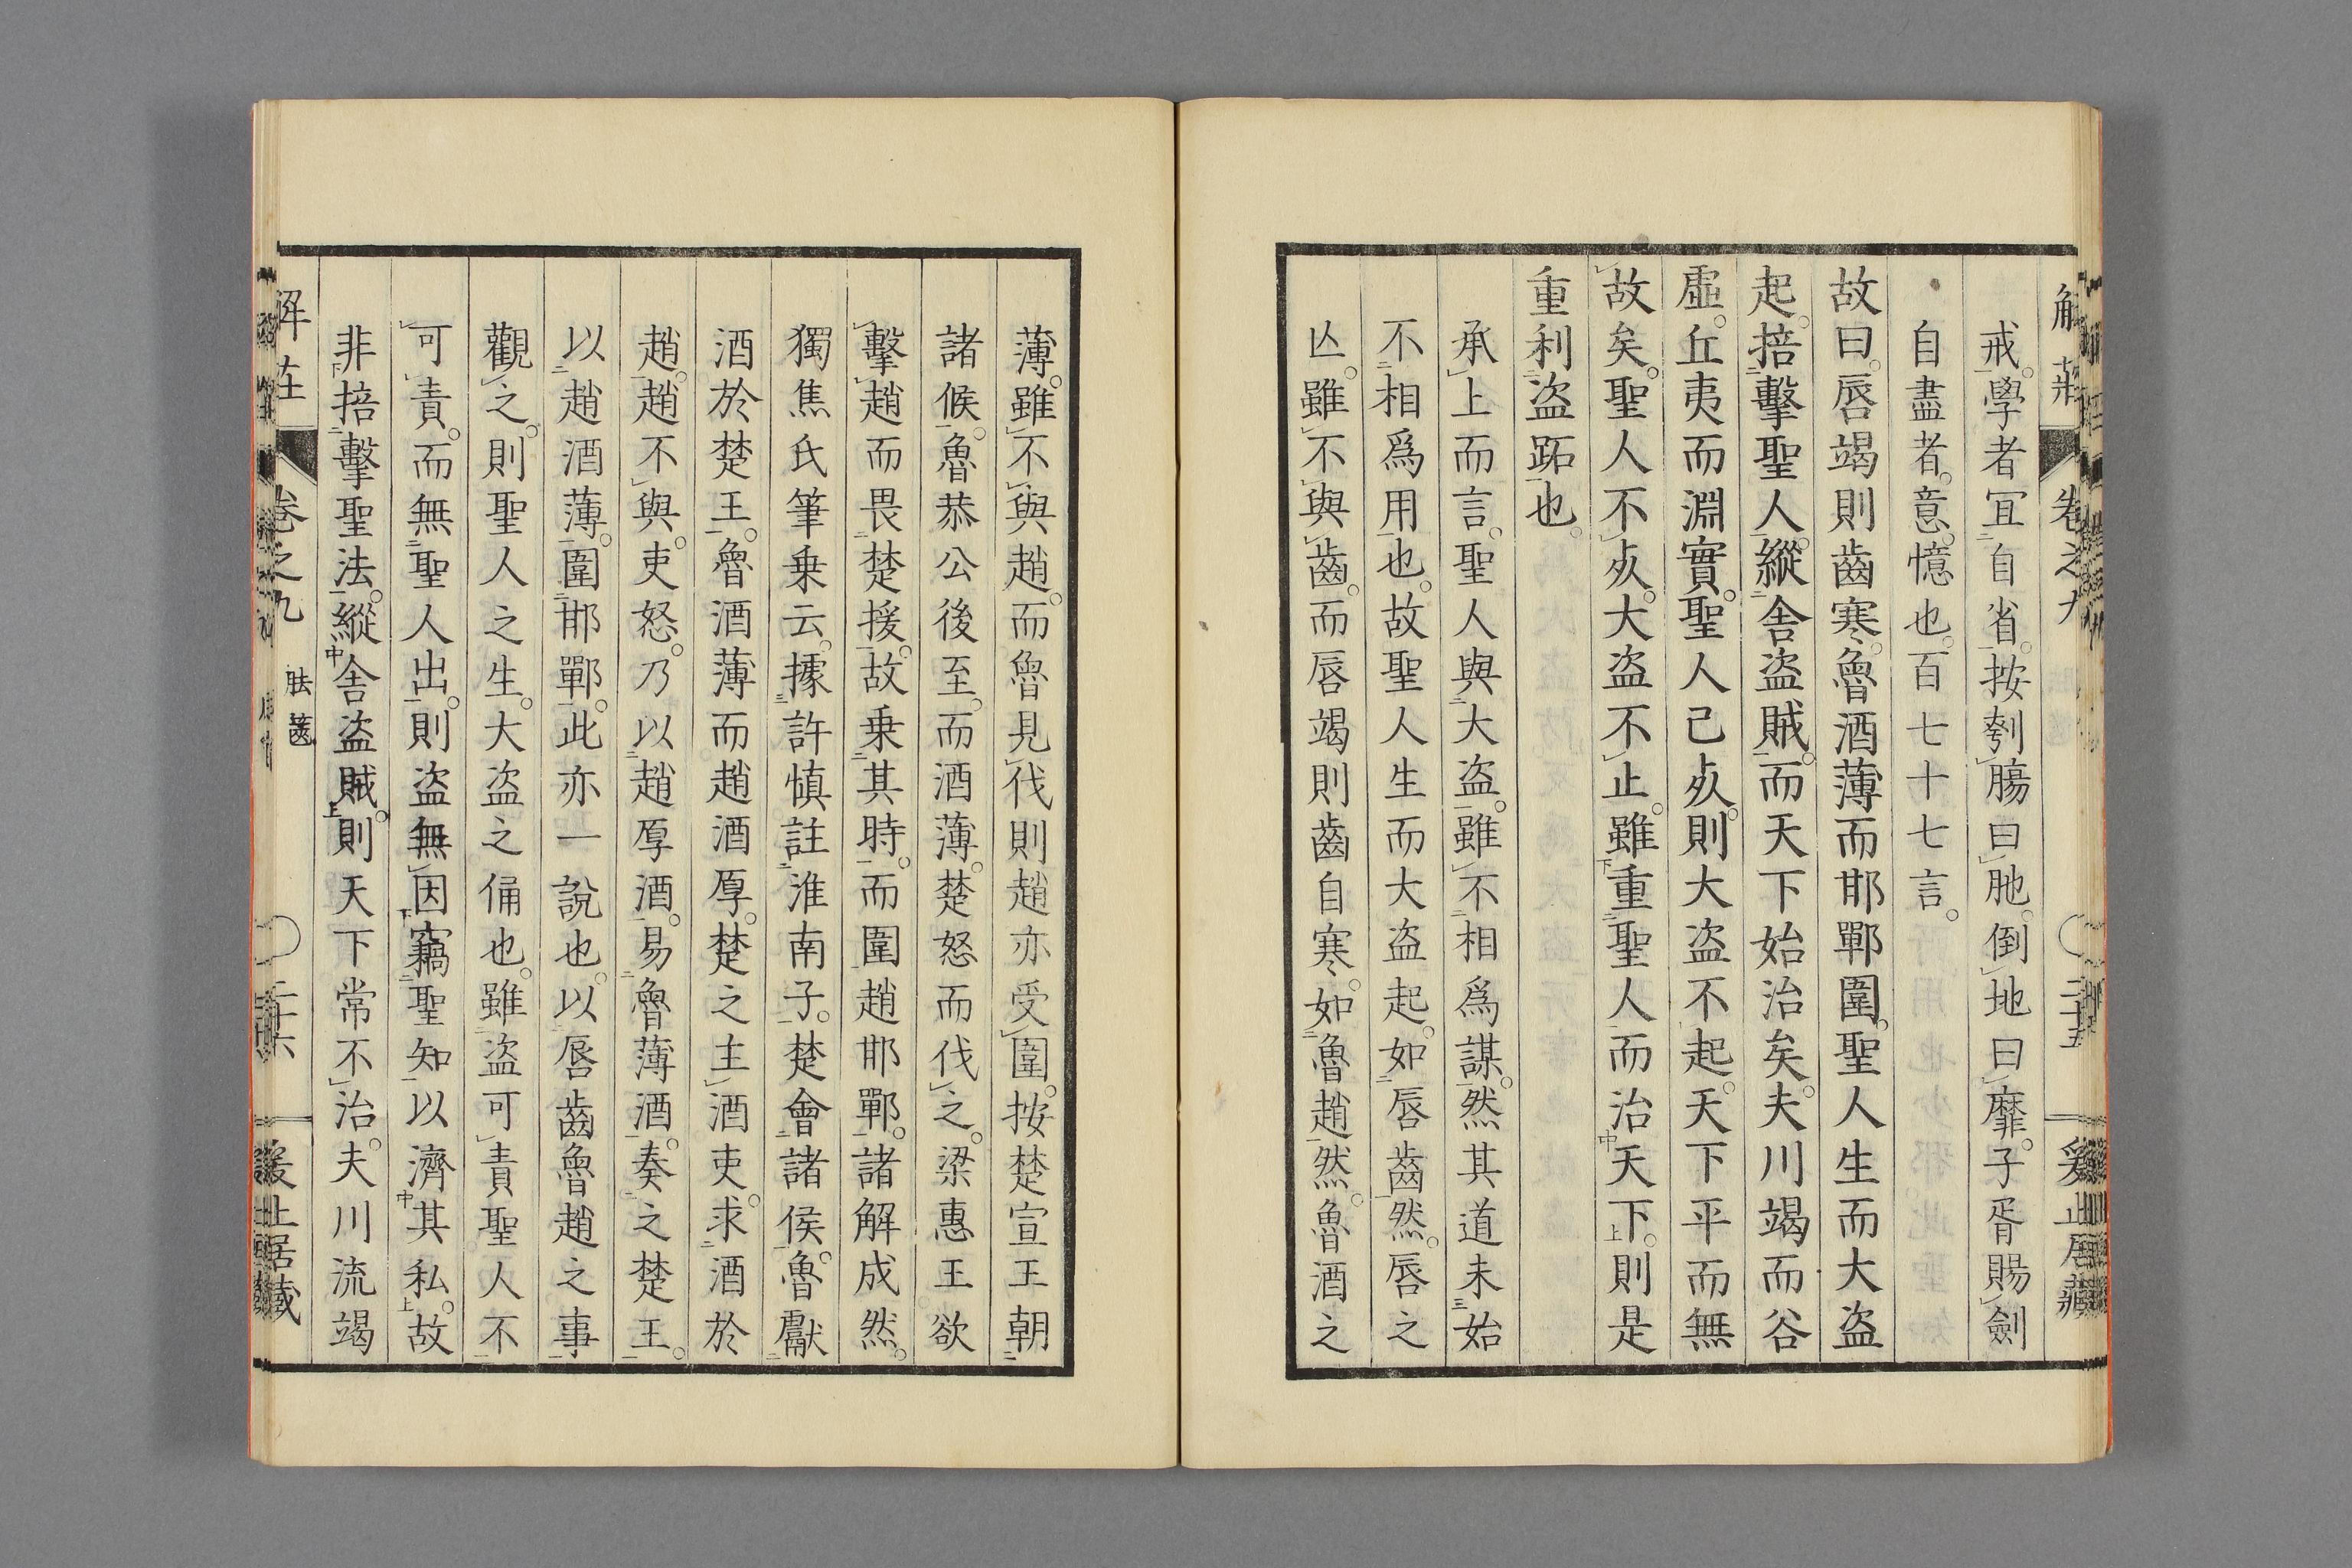 解莊 卷之九 二十五 爰止居藏
戒。學者冝自省。按刳腸曰胣。倒地曰靡。子胥賜劍
自盡者。意。憶也。百七十七言。
故曰。唇竭則齒寒。魯酒薄而邯鄲圍。聖人生而大盗
起。掊擊聖人。縱舎盗賊。而天下始治矣。夫川竭而谷
虛。丘夷而淵實。聖人已㱙。則大盗不起。天下平而無
故矣。聖人不㱙。大盗不止。雖重聖人而治天下。則是
重利盗跖也。
承上而言。聖人與大盗。雖不相爲謀。然其道未始
不相爲用也。故聖人生而大盗起。如唇齒然。唇之
亾。雖不與齒。而唇竭則齒自寒。如魯趙然。魯酒之
薄。雖不與趙。而魯見伐則趙亦受圍。按楚宣王朝
諸候。魯恭公後至。而酒薄。楚怒而伐之。梁惠王欲
擊趙而畏楚援。故乗其時。而圍趙邯鄲。諸解成然。
獨焦氏筆乗云。據許慎註淮南子。楚會諸侯。魯獻
酒於楚王。魯酒薄而趙酒厚。楚之主酒吏求酒於
趙。趙不與。吏怒。乃以趙厚酒。易魯薄酒。奏之楚王。
以趙酒薄。圍邯鄲。此亦一說也。以唇齒魯趙之事
觀之。則聖人之生。大盗之俑也。雖盗可責聖人不
可責。而無聖人出。則盗無因竊聖知以濟其私。故
非掊擊聖法。縱舎盗賊。則天下常不治。夫川流竭
解莊 卷之九 胠篋 二十六 爰止居藏